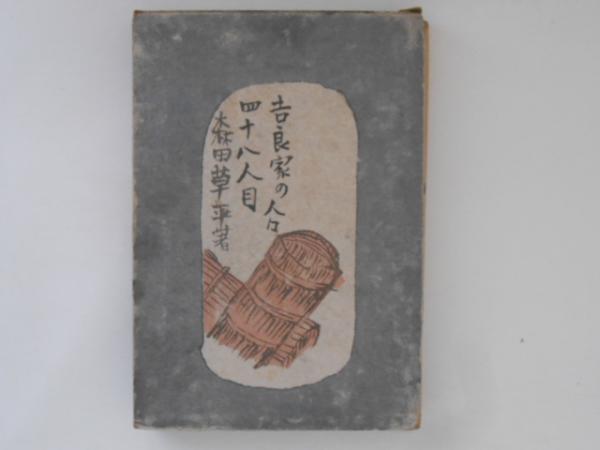 吉良家の人々
四十八人目
森田草平著